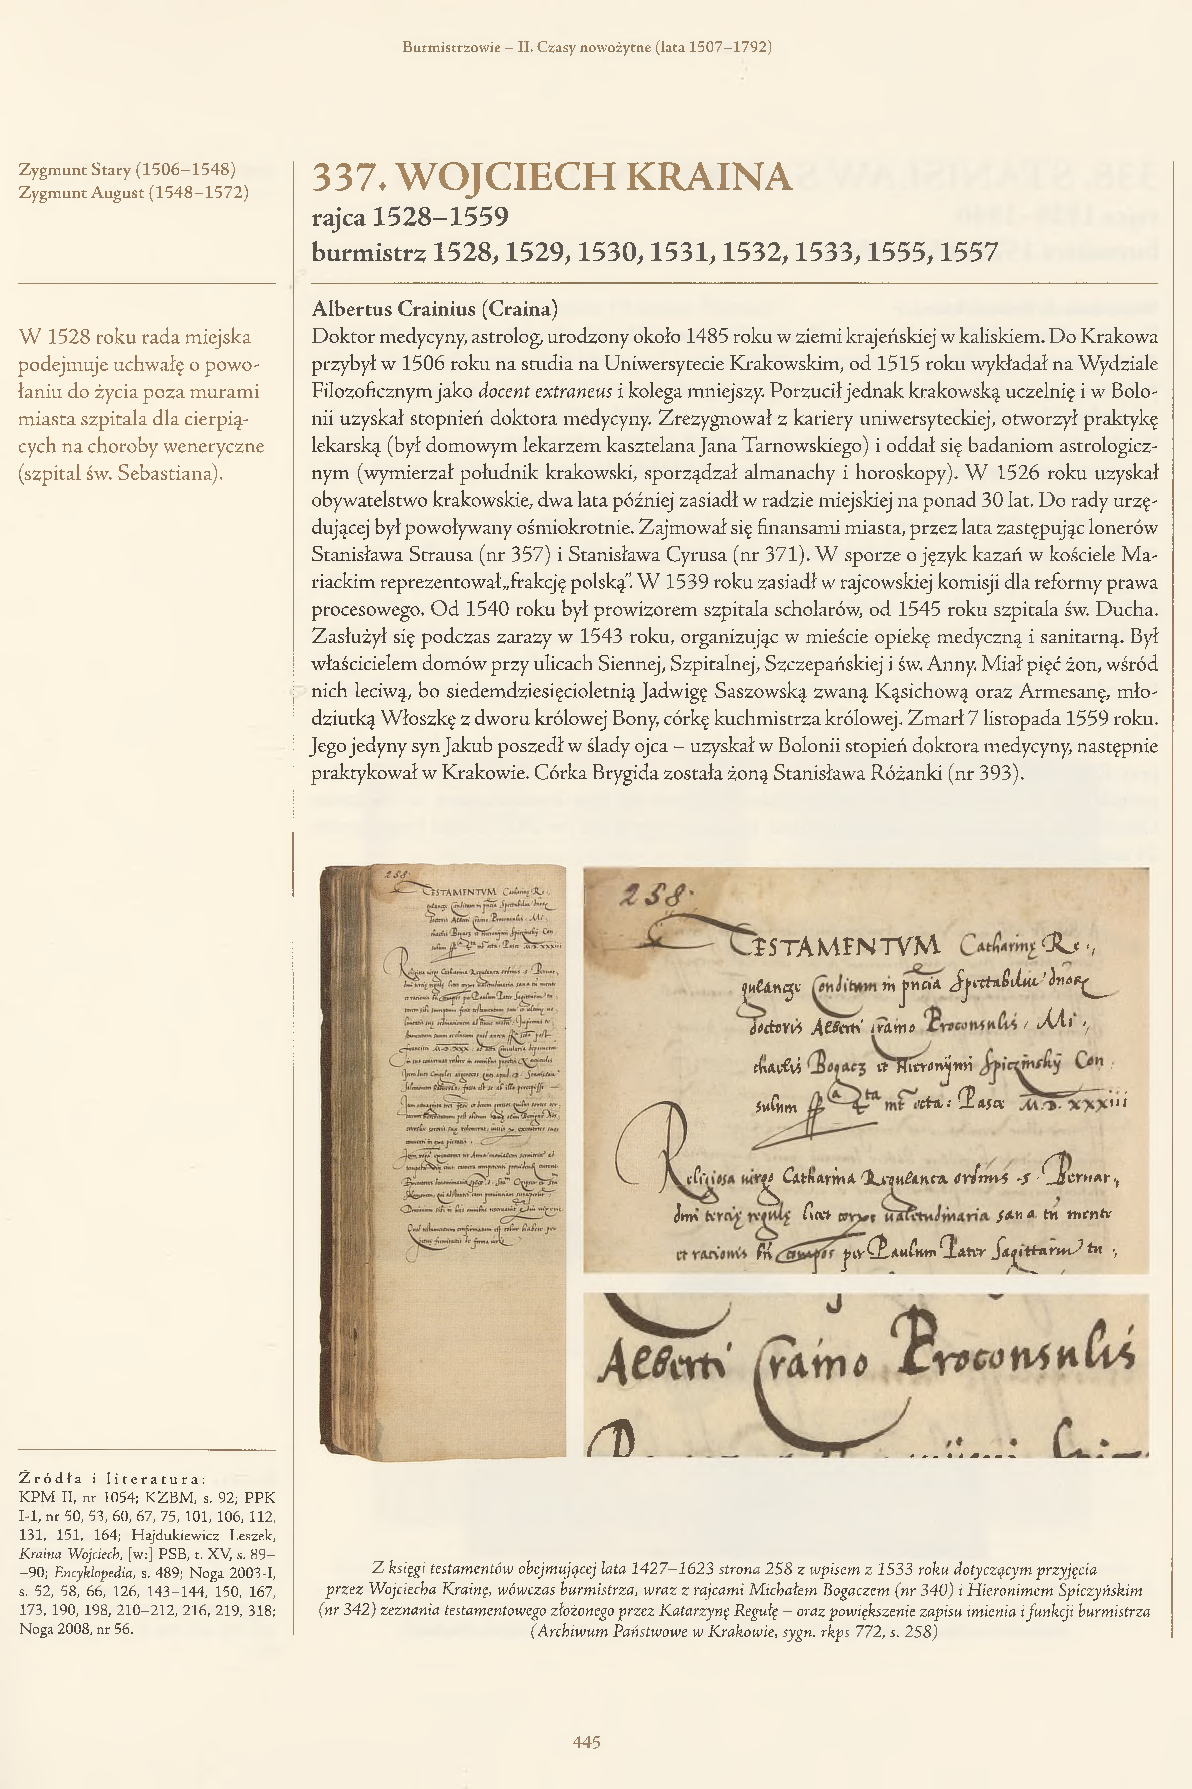 Burmistrzowie – II. Czasy nowożytne (lata 1507–1792)
Zygmunt Stary (1506–1548)
Zygmunt August (1548–1572)
337. WOJCIECH KRAINA
rajca 1528–1559
burmistrz 1528, 1529, 1530, 1531, 1532, 1533, 1555, 1557
W 1528 roku rada miejska
podejmuje uchwałę o powo-
łaniu do życia poza murami
miasta szpitala dla cierpią-
cych na choroby weneryczne
(szpital św. Sebastiana).
Albertus Crainius (Craina)
Doktor medycyny, astrolog, urodzony około 1485 roku w ziemi krajeńskiej w kaliskiem. Do Krakowa
przybył w 1506 roku na studia na Uniwersytecie Krakowskim, od 1515 roku wykładał na Wydziale
Filozoficznym jako docent extraneus i kolega mniejszy. Porzucił jednak krakowską uczelnię i w Bolo-
nii uzyskał stopnień doktora medycyny. Zrezygnował z kariery uniwersyteckiej, otworzył praktykę
lekarską (był domowym lekarzem kasztelana Jana Tarnowskiego) i oddał się badaniom astrologicz-
nym (wymierzał południk krakowski, sporządzał almanachy i horoskopy). W 1526 roku uzyskał
obywatelstwo krakowskie, dwa lata później zasiadł w radzie miejskiej na ponad 30 lat. Do rady urzę-
dującej był powoływany ośmiokrotnie. Zajmował się finansami miasta, przez lata zastępując lonerów
Stanisława Strausa (nr 357) i Stanisława Cyrusa (nr 371). W sporze o język kazań w kościele Ma-
riackim reprezentował „frakcję polską”. W 1539 roku zasiadł w rajcowskiej komisji dla reformy prawa
procesowego. Od 1540 roku był prowizorem szpitala scholarów, od 1545 roku szpitala św. Ducha.
Zasłużył się podczas zarazy w 1543 roku, organizując w mieście opiekę medyczną i sanitarną. Był
właścicielem domów przy ulicach Siennej, Szpitalnej, Szczepańskiej i św. Anny. Miał pięć żon, wśród
nich leciwą, bo siedemdziesięcioletnią Jadwigę Saszowską zwaną Kąsichową oraz Armesanę, mło-
dziutką Włoszkę z dworu królowej Bony, córkę kuchmistrza królowej. Zmarł 7 listopada 1559 roku.
Jego jedyny syn Jakub poszedł w ślady ojca – uzyskał w Bolonii stopień doktora medycyny, następnie
praktykował w Krakowie. Córka Brygida została żoną Stanisława Różanki (nr 393).
258
TESTAMENTVM Catharinę Re
258
TESTAMENTVM Catharinę Re
gulancze Conditum in
doctoris Alberti Craino Proconsulis, Mi
chaelis Bogacz et Hieronymi Spiczinskÿ Con
sulum octa: Pasce M.D. XXXiii
Religiosa uirgo Catharina Regulanca ordinis S Bernar
dini tercię regulę licet corpore ualetudinaria sana tn mente
et racionis per Paulum Pater Sagittarium tu
Alberti Craino Proconsulis
Źródła i literatura:
KPM II, nr 1054; KZBM, s. 92; PPK
I-1, nr 50, 53, 60, 67, 75, 101, 106, 112,
131, 151, 164; Hajdukiewicz Leszek,
Kraina Wojciech, [w:] PSB, t. XV, s. 89–
–90; Encyklopedia, s. 489; Noga 2003-I,
s. 52, 58, 66, 126, 143–144, 150, 167,
173, 190, 198, 210–212, 216, 219, 318;
Noga 2008, nr 56.
Z księgi testamentów obejmującej lata 1427–1623 strona 258 z wpisem z 1533 roku dotyczącym przyjęcia
przez Wojciecha Krainę, wówczas burmistrza, wraz z rajcami Michałem Bogaczem (nr 340) i Hieronimem Spiczyńskim
(nr 342) zeznania testamentowego złożonego przez Katarzynę Regułę – oraz powiększenie zapisu imienia i funkcji burmistrza
(Archiwum Państwowe w Krakowie, sygn. rkps 772, s. 258)
445